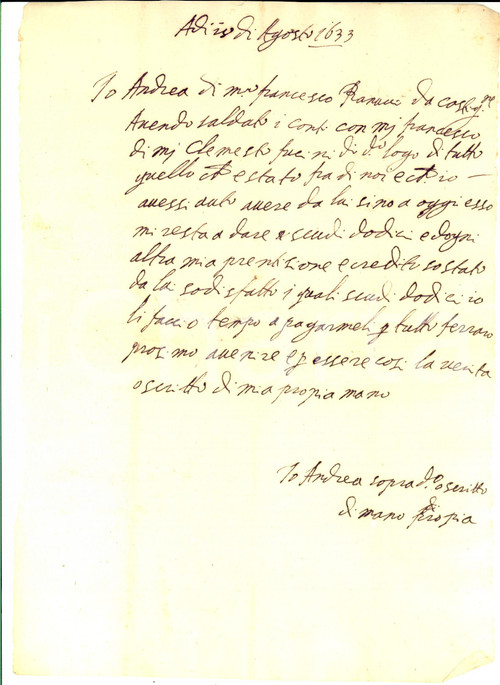 Adi di Agosto 1633
Io Andrea di m.o francesco Ranucci da
Avendo saldato i conti con mj francesco
di mj Clemesto fucini di d.o logo di tutto
quello che estato fra di noi e che io —
avessi auto avere da lui sino a oggi esso
mi resta a dare scudi dodici e dogni
altra mia pretisione e credito so stato
da lui sodisfatto i quali scudi dodici io
li faccio tempo a pagarmeli p tutto ferraro
prosimo avenire e p essere cosi la verita
o scritto di mia propia mano
Io Andrea sopra d.o o scritto
di mano propia